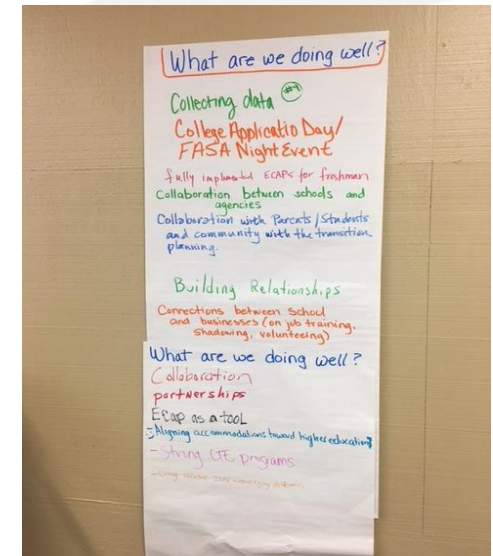 What are we doing well?
Collecting data #1
College Applicatio Day/
FASA Night Event
fully implemented ECAPs for freshman
Collaboration between schools and
agencies
Collaboration with Parents/Students
and community with the transition
planning.
Building Relationships
Connections between school
and businesses (on job training,
shadowing, volunteering)
What are we doing well?
Collaboration
partnerships
ECap as a tool
Aligning accommodations toward higher education?
-Strong CTE programs